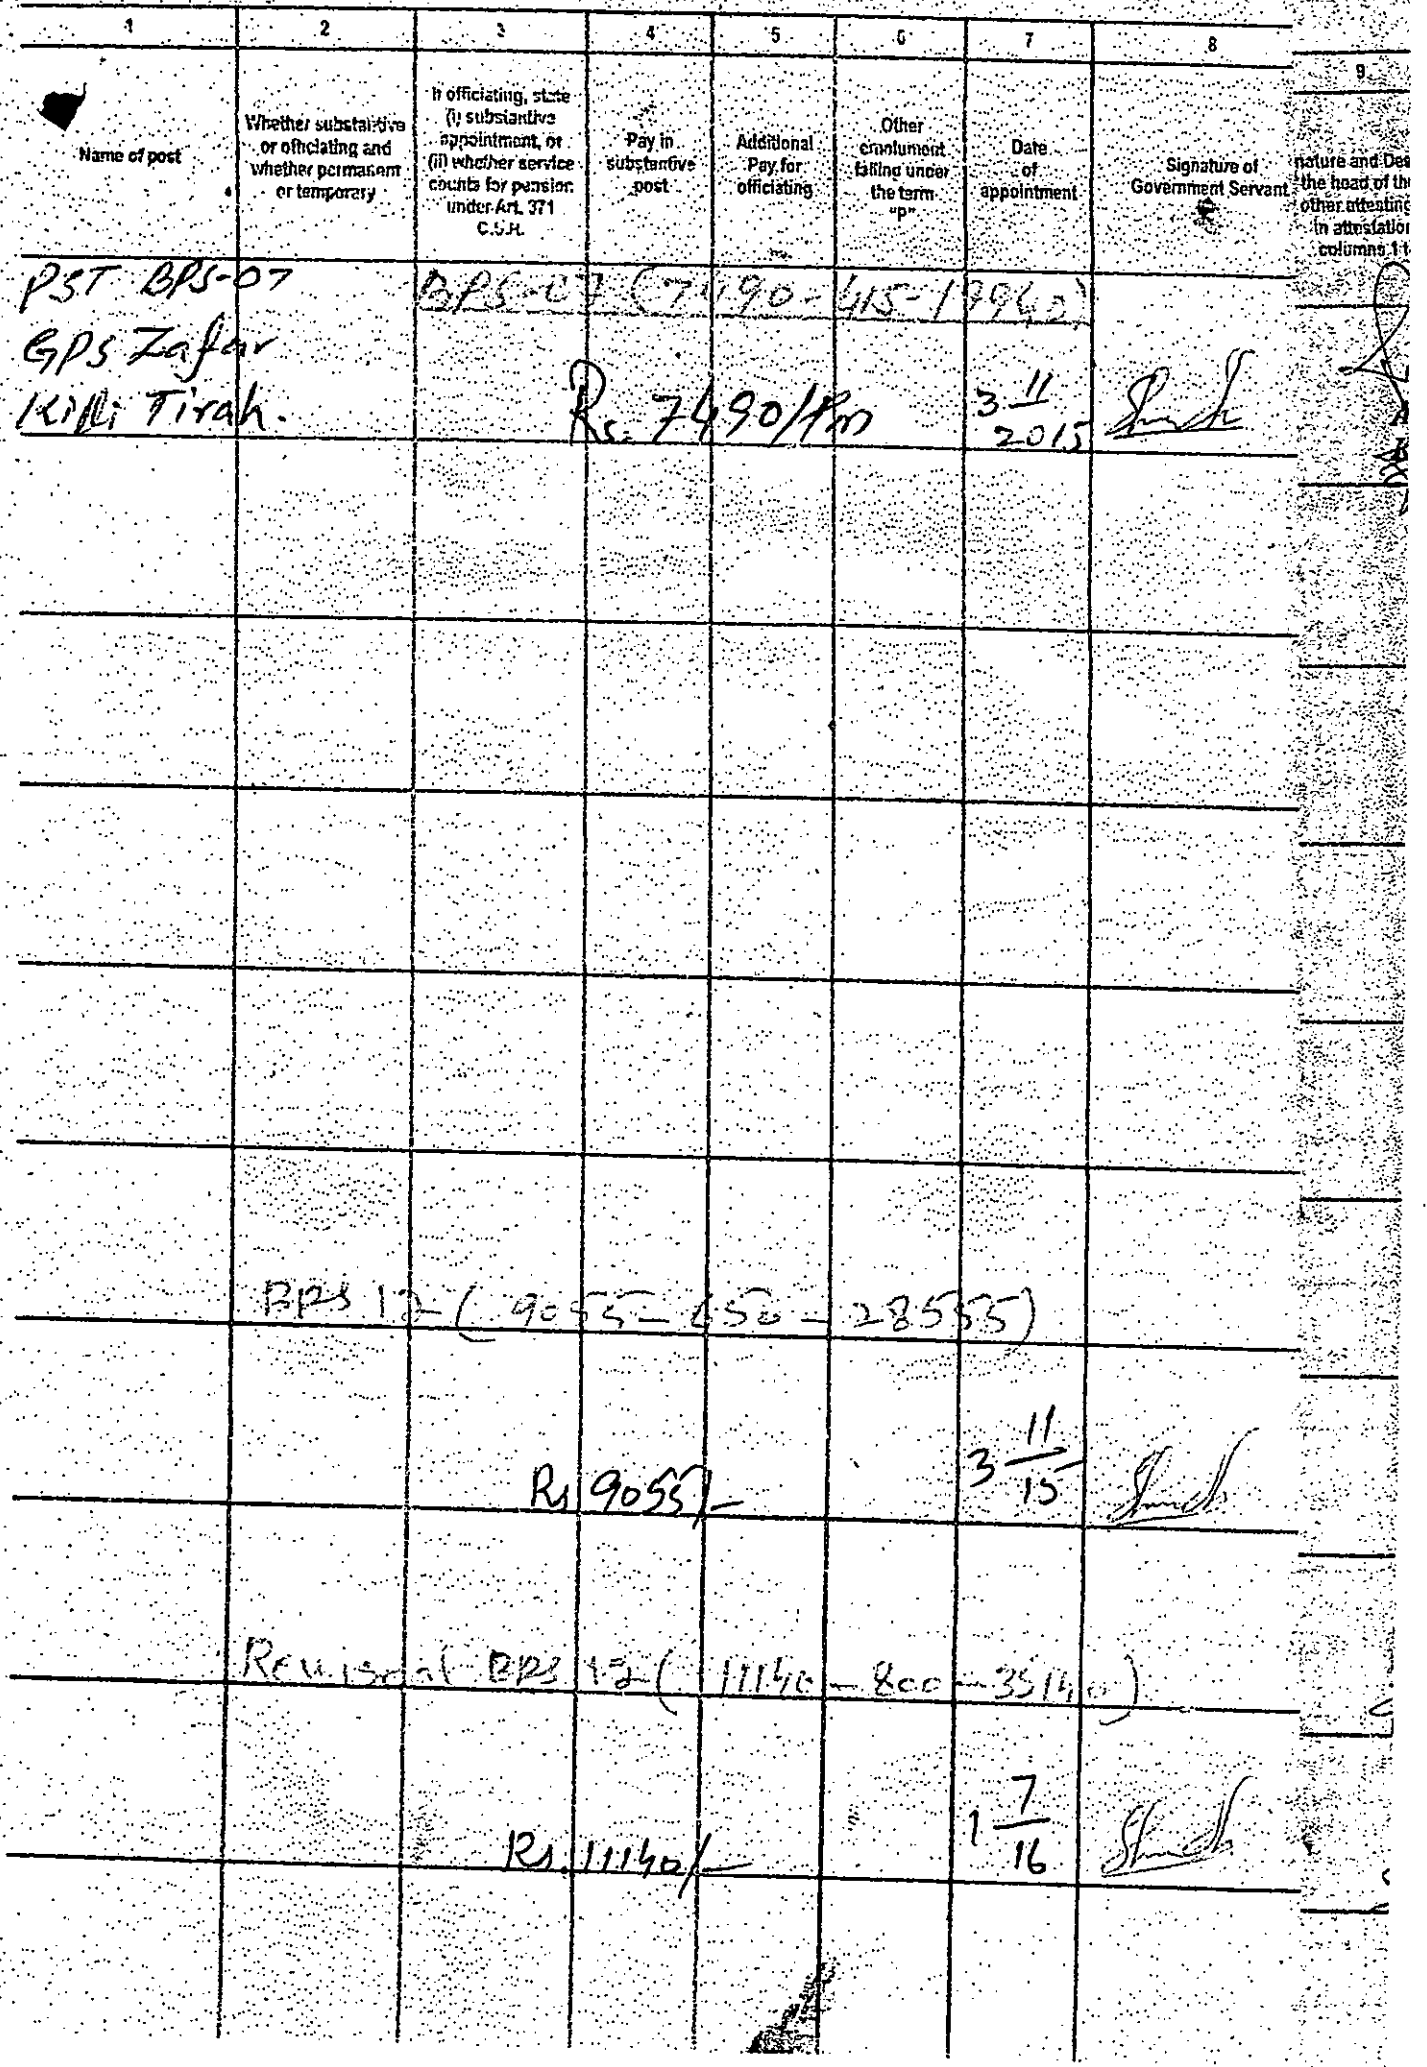 1 2 3 4 5 6 7 8 9
Name of post
Whether substantive
or officiating and
whether permanent
or temporary
If officiating, state
(i) substantive
appointment, or
(ii) whether service
counts for pension
under Art. 371
C.S.R.
Pay in
substantive
post
Additional
Pay for
officiating
Other
emolument
falling under
the term
"P"
Date
of
appointment
Signature of
Government Servant
nature and Des
the head of the
other attesting
in attestation
columns 1 t
PST BPS-07 BPS-07 (7490-415-19940)
GPS Zafar
Killi Tirah. Rs. 7490/Pm 3 11 2015
BPS 12 (9055-650-28555)
Rs 9055/- 3 11 15
Revised BPS 12 (11140-800-35140)
Rs. 11140/- 1 7 16